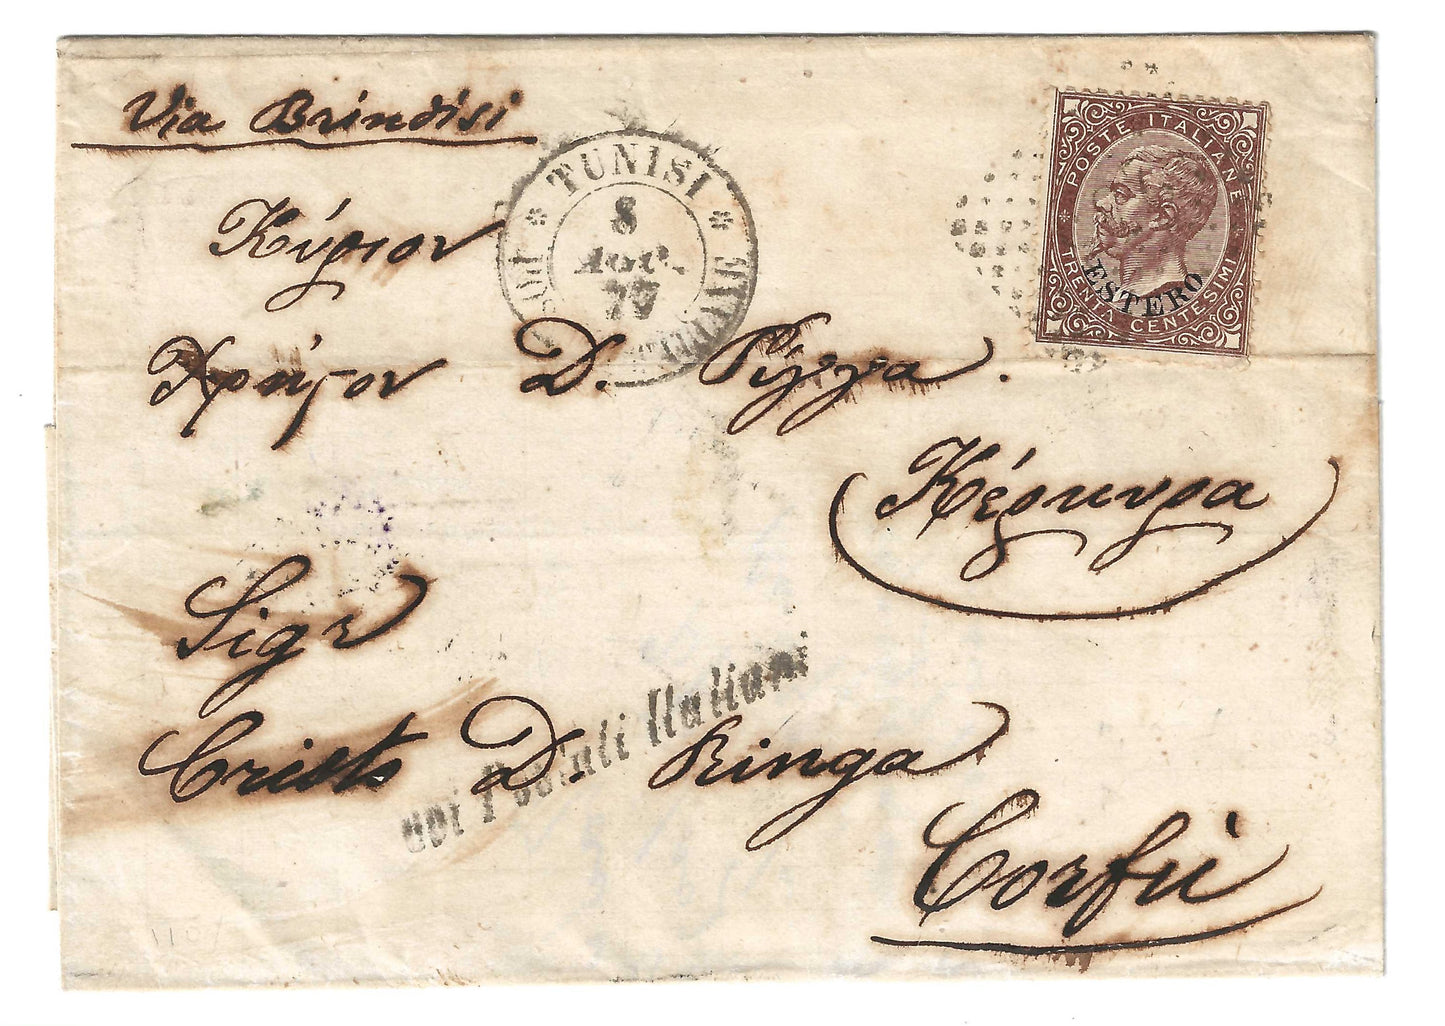 Via Brindisi
TUNISI
8
AGO.
77
POSTE ITALIANE
ESTERO
TRENTA CENTESIMI
Κύριον
Χρῆστον Δ. Ρίγγα.
Κέρκυρα
Sigr
Cristo D. Ringa
Postali Italiani
Corfù